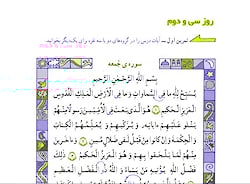 روز سی و دوم
تمرین اول ـ آیات درس را در گروه‌های دو یا سه نفره برای یک‌دیگر بخوانید.
سوره‌ی جمعه
بِسْمِ اللَّهِ الرَّحْمٰنِ الرَّحیمِ
یُسَبِّحُ لِلَّهِ ما فِی السَّماواتِ وَ ما فِی الْاَرْضِ الْمَلِکِ الْقُدّوسِ
الْعَزیزِ الْحَکیمِ هُوَ الَّذی بَعَثَ فِی الْاُمِّیّینَ رَسولًا مِنْهُمْ
یَتْلوا عَلَیْهِمْ آیاتِهِ وَ یُزَکّیهِمْ وَ یُعَلِّمُهُمُ الْکِتابَ
وَ الْحِکْمَةَ وَ اِنْ کانوا مِنْ قَبْلُ لَفی ضَلالٍ مُبینٍ وَ آخَرینَ
مِنْهُمْ لَمّا یَلْحَقوا بِهِمْ وَ هُوَ الْعَزیزُ الْحَکیمُ ذٰلِکَ
فَضْلُ اللَّهِ یُؤْتیهِ مَنْ یَشاءُ وَ اللَّهُ ذُو الْفَضْلِ الْعَظیمِ